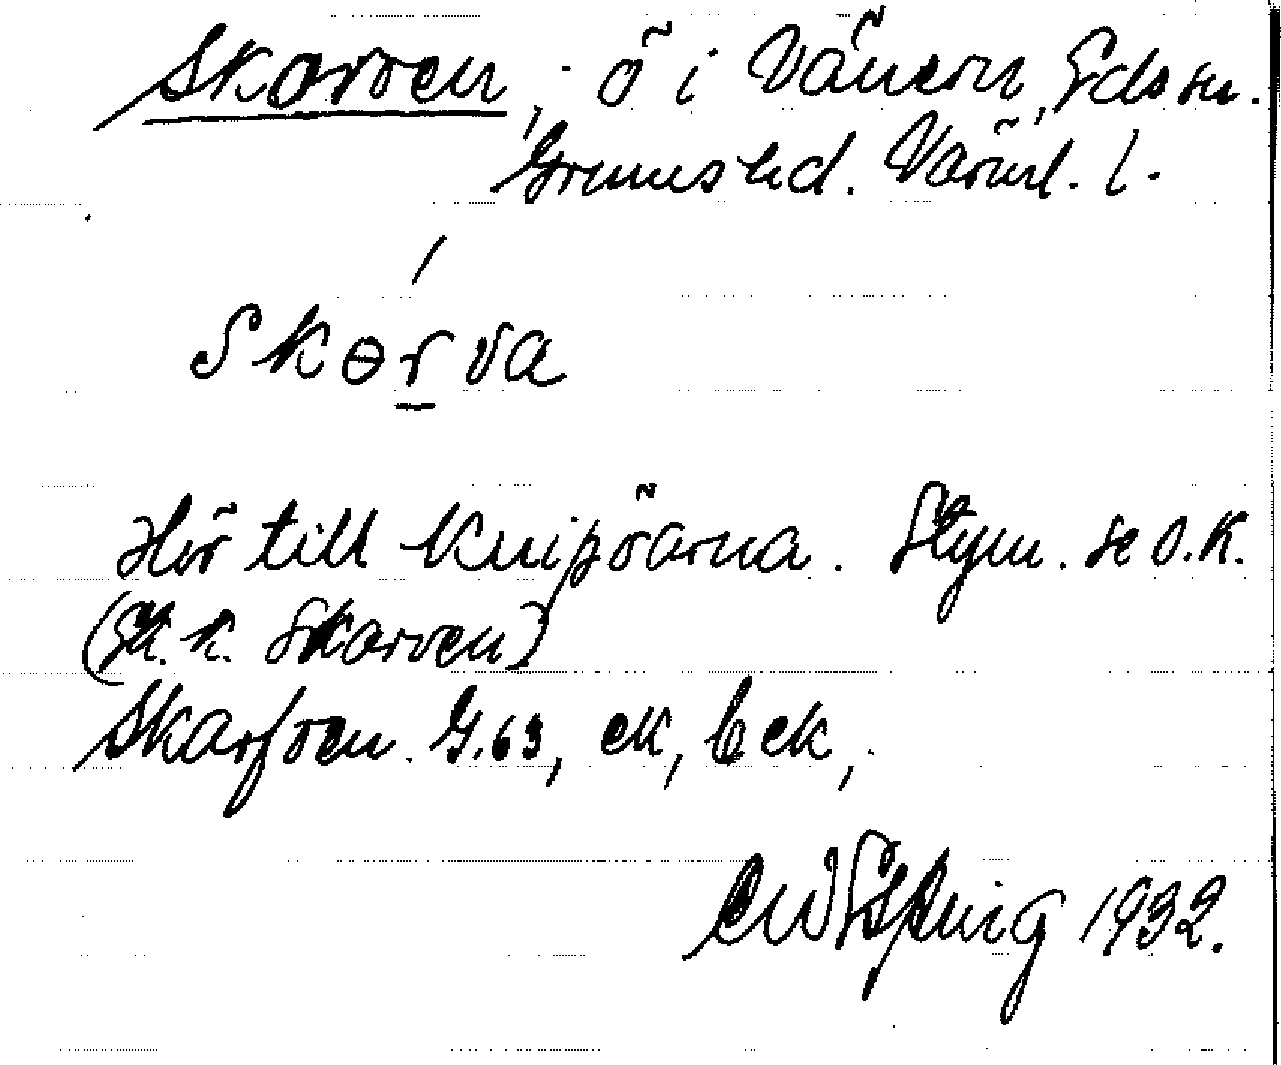 Skarven, ö i Vänern, Eds sn.
Grums hd. Värml. l.
Skɵrva
Hör till Knipöarna. Etym. se O.K.
(Ek. k. Skarven)
Skarfven G.63, ek, bek,
1932.